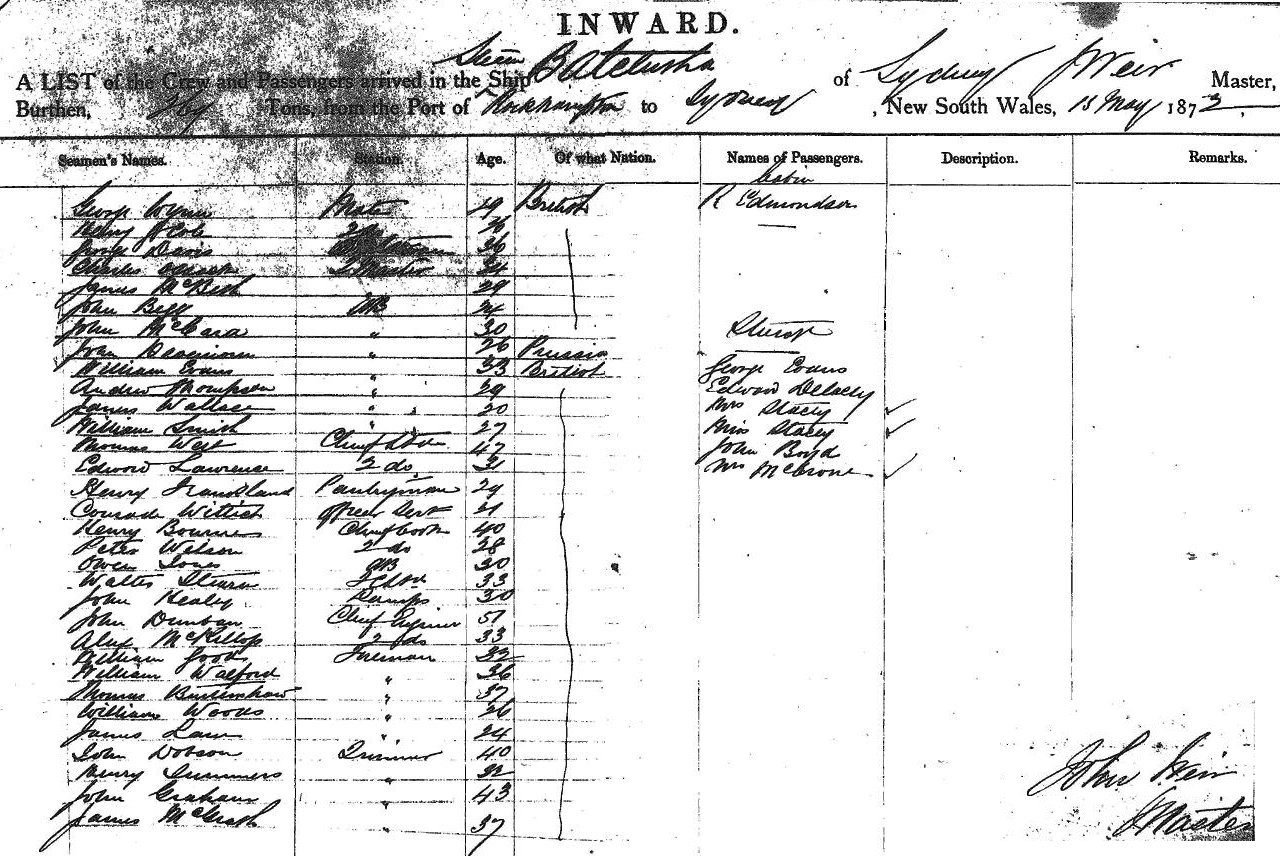 INWARD.
A LIST of the Crew and Passengers arrived in the Ship Steam of Sydney J Weir Master,
Burthen, Tons, from the Port of Rockhampton to Sydney, New South Wales, 15 May 1872
Seamen's Names. Station. Age. Of what Nation. Names of Passengers. Description. Remarks.
Cabin
George Mate 49 British R Edmondson
Henry 26
George Davis 36
Charles 34
James McBeth 29
John Begg AB 24
John McCara " 30 Steerage
John " 26 Prussia
William Evans " 33 British George Evans
Andrew Thompson " 29 Edward Delacey
James Wallace " 20 Mrs Stacey ✓
William Smith " 27 Miss Stacey ✓
Thomas West 47 John Boyd
Edward Lawrense 2 do 31 Mrs McCrone ✓
Henry Frankland Pantryman 29
Conrade Wittich 21
Henry Bourne Chief Cook 40
Peter Wilson 2 do 28
Owen Jones AB 30
Walter Stearn 33
John Healey 30
John Dunbar Chief Engineer 51
Alex McKillop 2 do 33
William Good Fireman 32
William Walford " 36
Thomas Burtenshaw " 37
William Woods " 26
James Law " 24
John Dobson Trimmer 40
Henry Summers " 22
John Graham " 43
James McGrath " 37
John Weir
Master